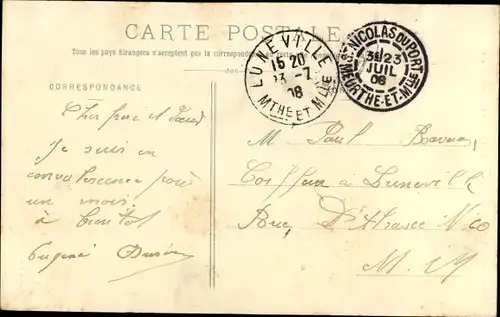 CARTE POSTALE
Tous les pays étrangers n'acceptent pas la correspondance
CORRESPONDANCE
LUNEVILLE
15 20
23 -7
08
MTHE ET MLLE
ST NICOLAS DU PORT
23
JUIL
08
MEURTHE-ET-MLLE
Cher frère et
Je suis en
convalescence pour
un mois.
à bientôt
Eugène
M Paul
Coiffeur à Lunéville
Rue D'Alsace No
M. M